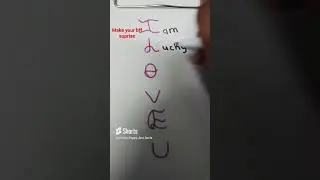 Make your bff
suprise
I am
Lucky
O
V
E
U
Shorts